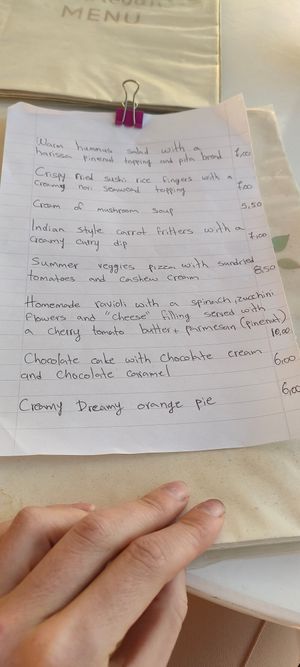 MENU
Warm hummus salad with a
harissa pinenut topping and pitta bread 7,00
Crispy fried sushi rice fingers with a
creamy nori seaweed topping 7,00
Cream of mushroom soup 5,50
Indian style carrot fritters with a
creamy curry dip 7,00
Summer veggies pizza with sundried
tomatoes and cashew cream 8,50
Homemade ravioli with a spinach, zucchini
flowers and "cheese" filling served with
a cherry tomato butter + parmesan (pinenut)
10,00
Chocolate cake with Chocolate cream
and Chocolate caramel 6,00
Creamy Dreamy orange pie 6,00